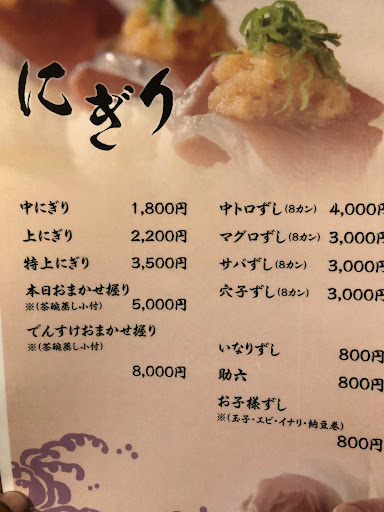 にぎり
中にぎり 1,800円
上にぎり 2,200円
特上にぎり 3,500円
本日おまかせ握り
※(茶碗蒸し小付) 5,000円
でんすけおまかせ握り
※(茶碗蒸し小付)
8,000円
中トロずし(8カン) 4,000円
マグロずし(8カン) 3,000円
サバずし(8カン) 3,000円
穴子ずし(8カン) 3,000円
いなりずし 800円
助六 800円
お子様ずし
※(玉子・エビ・イナリ・納豆巻)
800円